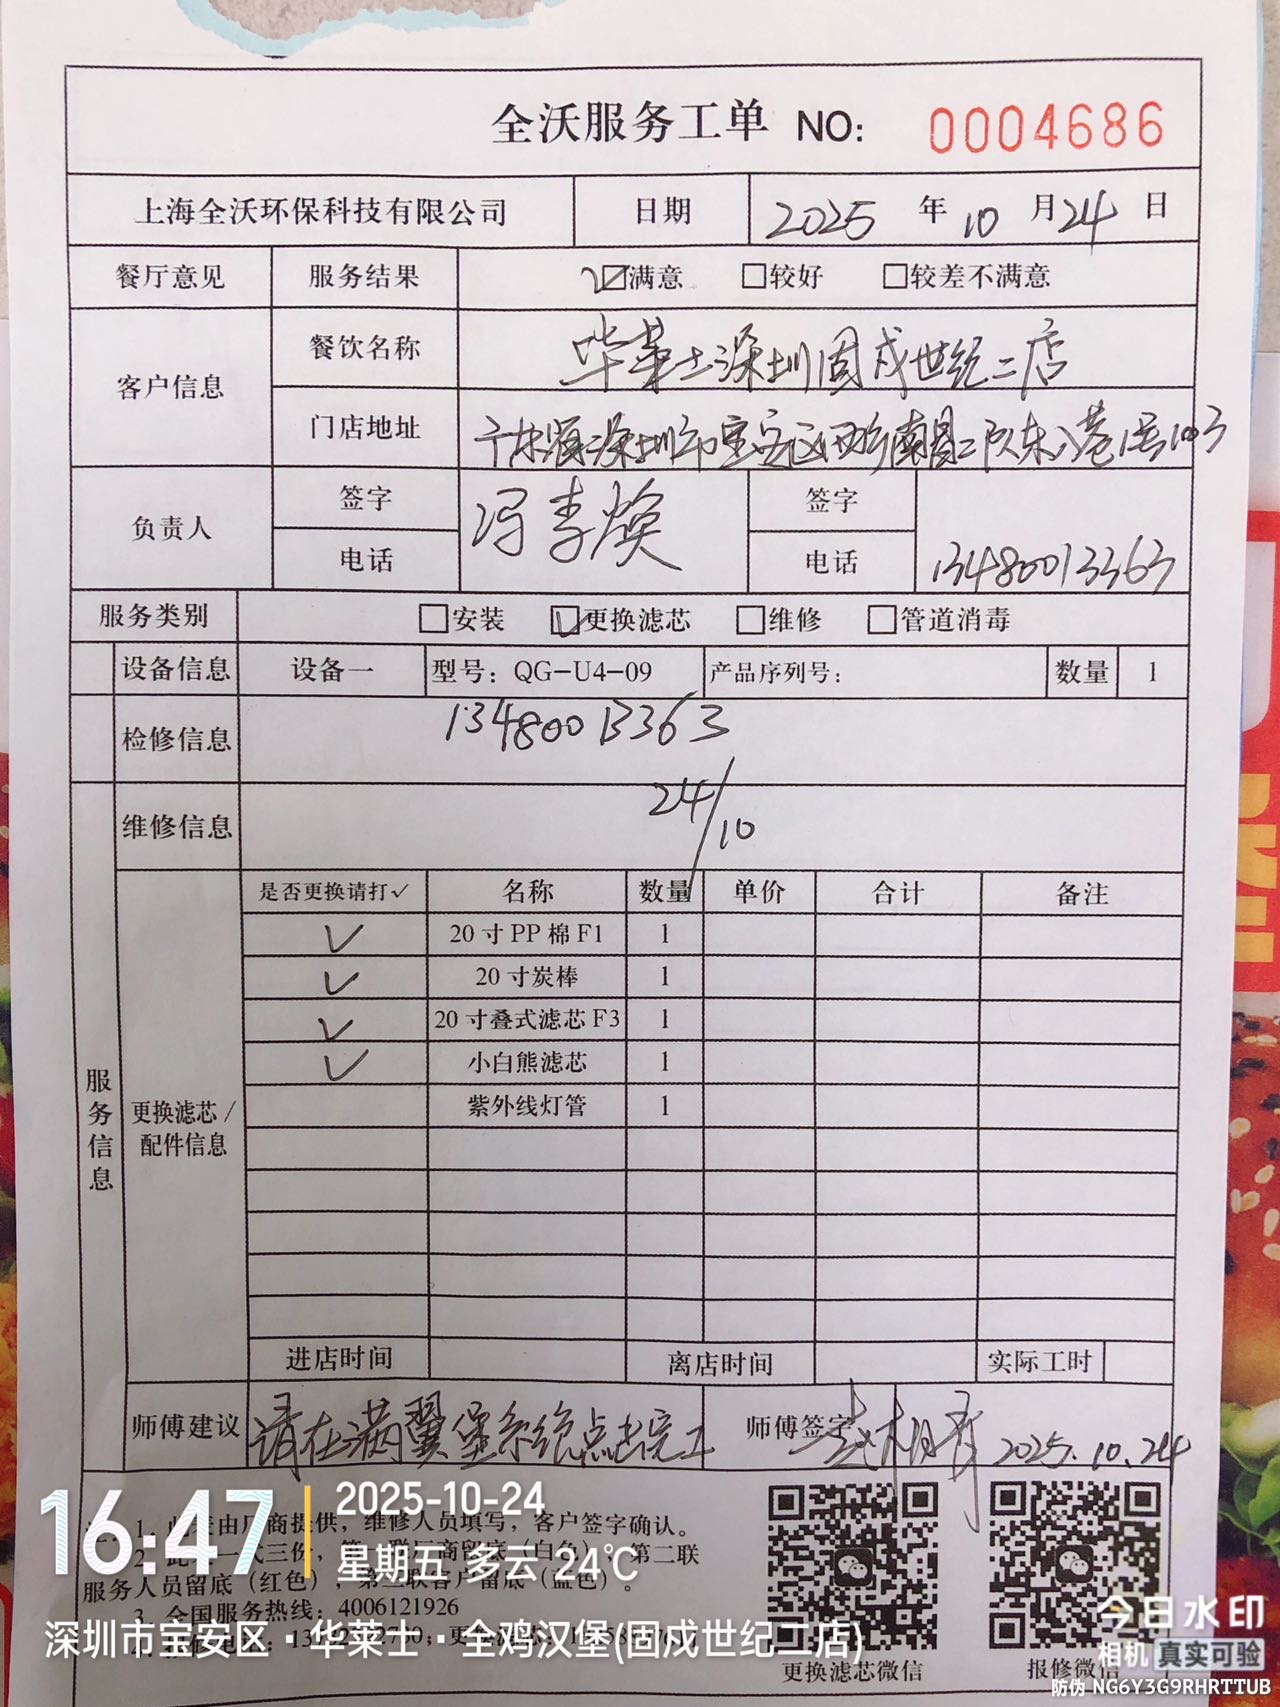 全沃服务工单 NO: 0004686
上海全沃环保科技有限公司 日期 2025 年 10 月 24 日
餐厅意见 服务结果 ☑满意 □较好 □较差不满意
客户信息 餐饮名称 华莱士深圳固戍世纪二店
门店地址 广东深圳市宝安区西乡南昌二队东八巷1号103
负责人 签字 冯李焕 签字
电话 电话 13480013363
服务类别 □安装 ☑更换滤芯 □维修 □管道消毒
设备信息 设备一 型号: QG-U4-09 产品序列号: 数量 1
检修信息 13480013363
维修信息 24/10
服务信息
更换滤芯/
配件信息
是否更换请打✓ 名称 数量 单价 合计 备注
✓ 20 寸 PP 棉 F1 1
✓ 20 寸炭棒 1
✓ 20 寸叠式滤芯 F3 1
✓ 小白熊滤芯 1
紫外线灯管 1
进店时间 离店时间 实际工时
师傅建议 请在满翼堡系统点击完工 师傅签字 2025.10.24
1. 此表由厂商提供，维修人员填写，客户签字确认。
2. 一式三份，第一联厂商留底（白色），第二联
服务人员留底（红色），第三联客户留底（蓝色）。
3. 全国服务热线：4006121926
更换滤芯微信 报修微信
16:47 2025-10-24
星期五 多云 24℃
深圳市宝安区·华莱士·全鸡汉堡(固戍世纪二店)
今日水印
相机 真实可验
防伪 NG6Y3G9RHRTTUB